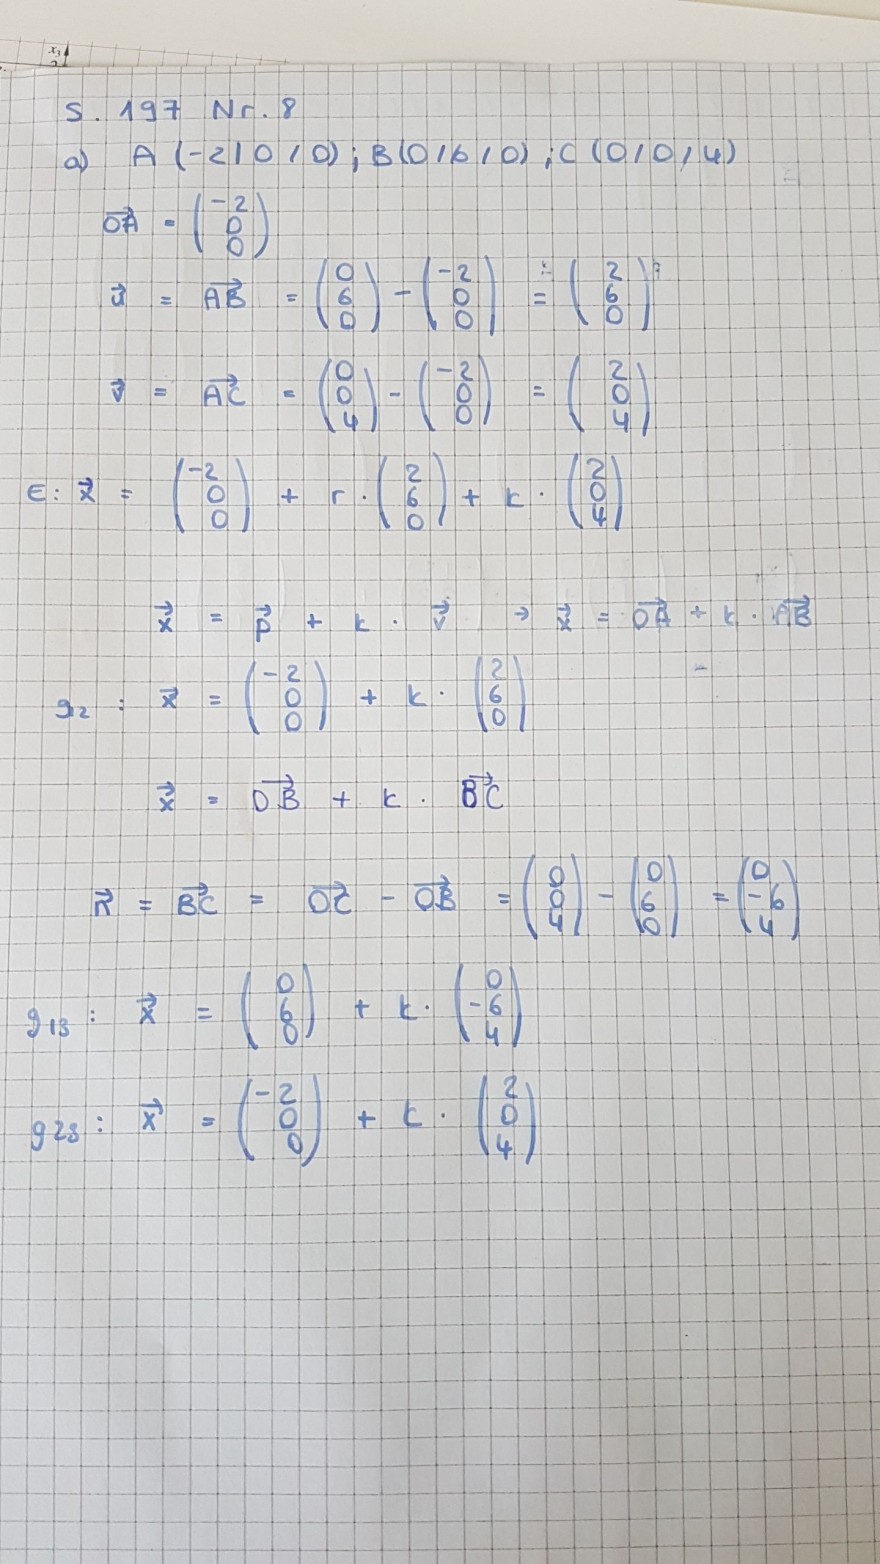 x₃
S. 197 Nr. 8
a) A (-2 | 0 | 0) ; B (0 | 6 | 0) ; C (0 | 0 | 4)
OA⃗ = (-2 0 0)
u⃗ = AB⃗ = (0 6 0) - (-2 0 0) = (2 6 0)
v⃗ = AC⃗ = (0 0 4) - (-2 0 0) = (2 0 4)
E: x⃗ = (-2 0 0) + r · (2 6 0) + k · (2 0 4)
x⃗ = p⃗ + k · v⃗ → x⃗ = OA⃗ + k · AB⃗
g₁₂ : x⃗ = (-2 0 0) + k · (2 6 0)
x⃗ = OB⃗ + k · BC⃗
n⃗ = BC⃗ = OC⃗ - OB⃗ = (0 0 4) - (0 6 0) = (0 -6 4)
g₁₃ : x⃗ = (0 6 0) + k · (0 -6 4)
g₂₃ : x⃗ = (-2 0 0) + k · (2 0 4)